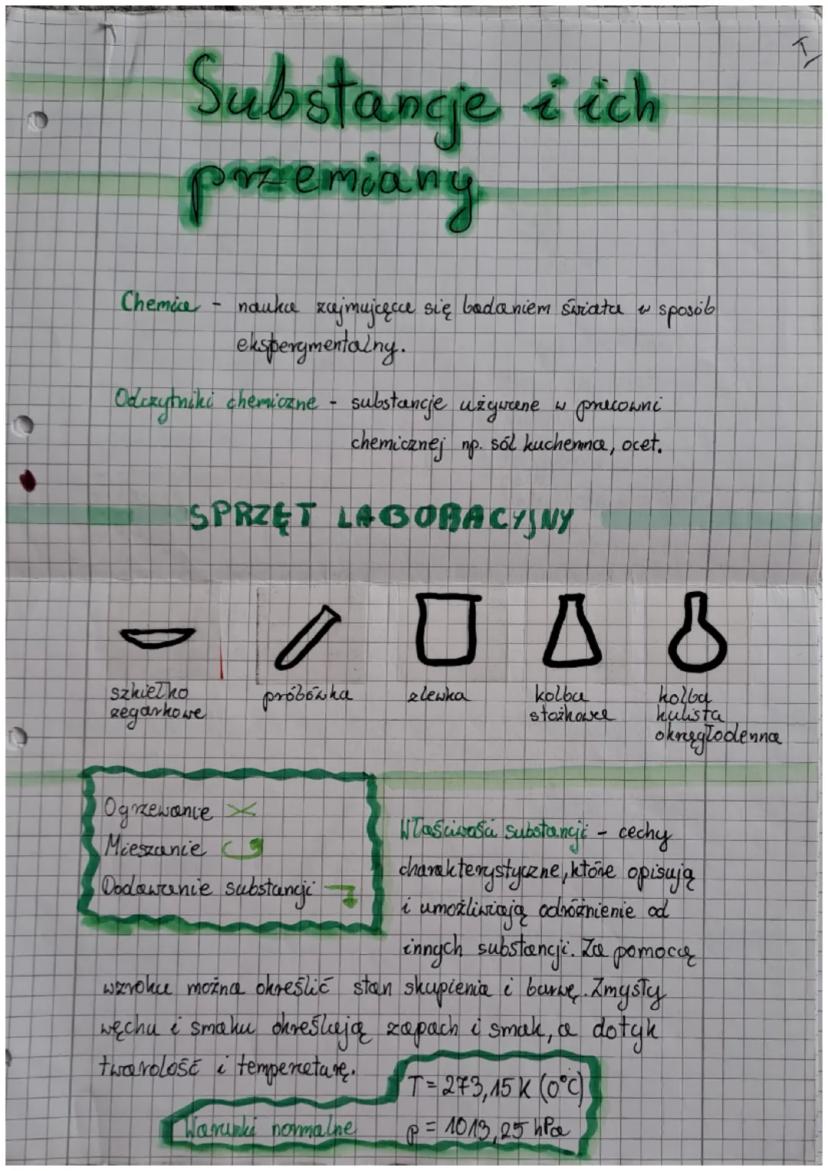 I
Substancje i ich
przemiany
Chemia - nauka zajmująca się badaniem świata w sposób
eksperymentalny.
Odczytniki chemiczne - substancje używane w pracowni
chemicznej np. sól kuchenna, ocet.
SPRZĘT LABORACYJNY
szkiełko
zegarkowe
probówka
zlewka
kolba
stożkowa
kolba
kulista
okrągłodenna
Ogrzewanie
Mieszanie
Dodawanie substancji
Właściwości substancji - cechy
charakterystyczne, które opisują
i umożliwiają odróżnienie od
innych substancji. Za pomocą
wzroku można określić stan skupienia i barwę. Zmysły
węchu i smaku określają zapach i smak, a dotyk
twardość i temperaturę.
T = 273,15 K (0°C)
Warunki normalne p = 1013,25 hPa